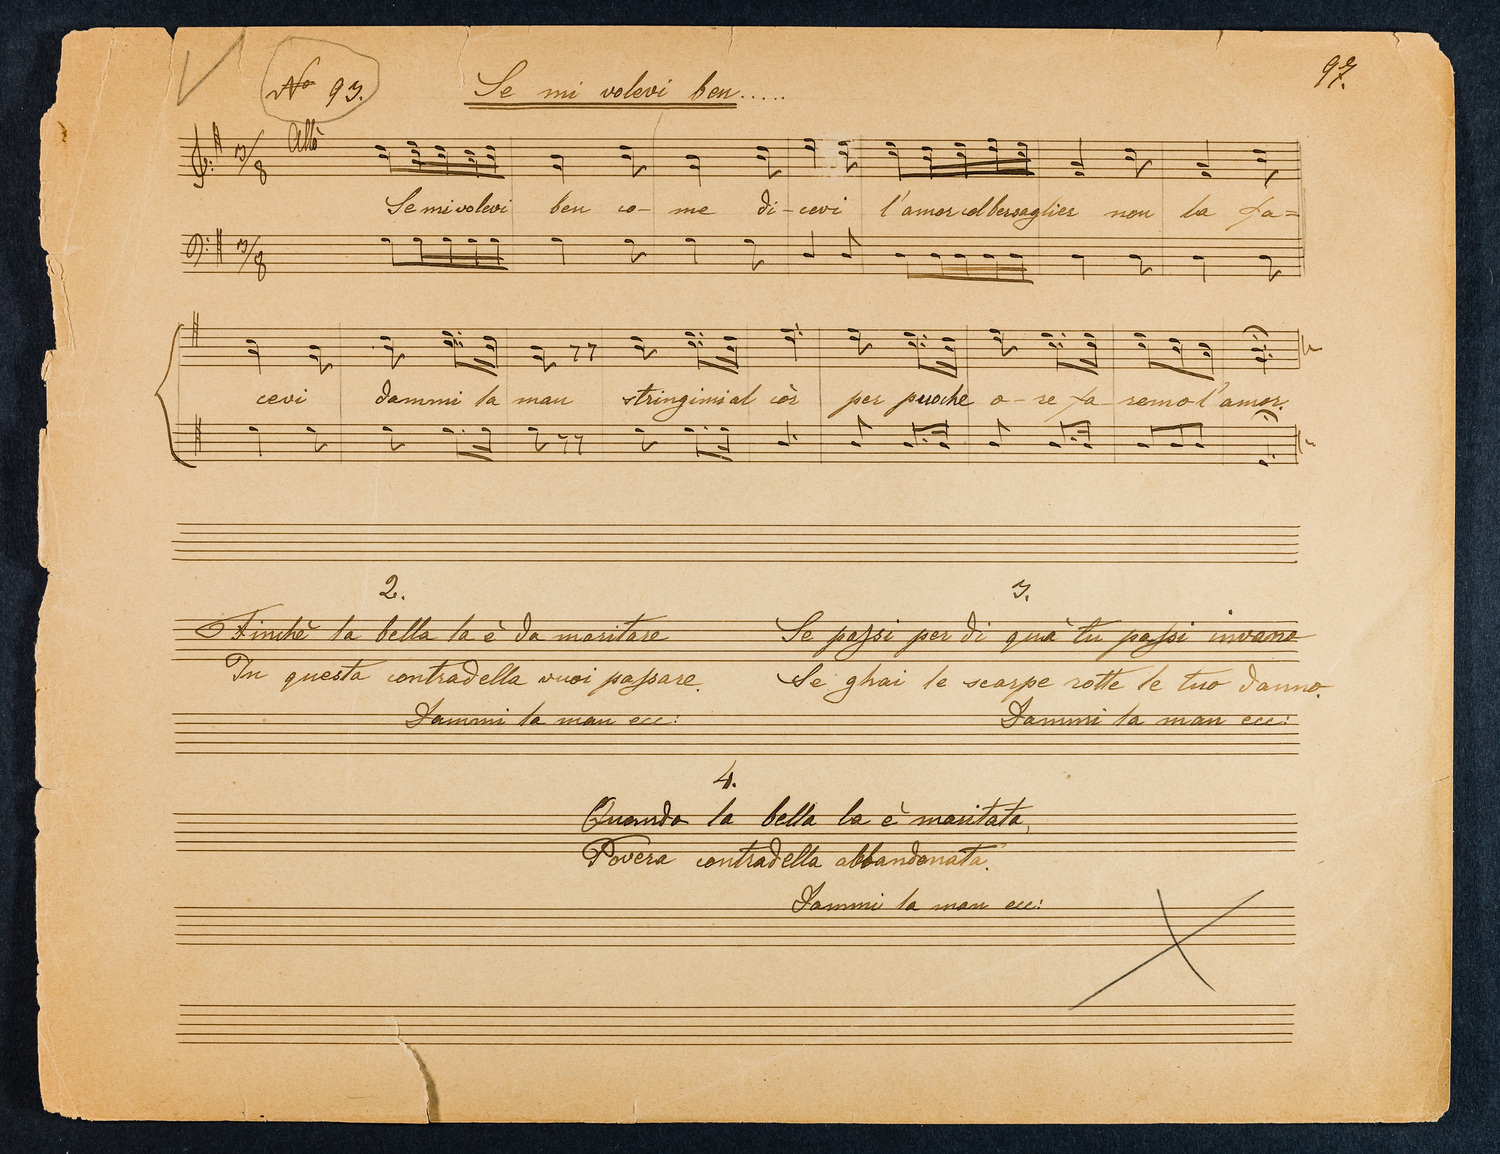 No 93.
Se mi volevi ben.....
97.
Allo
3/8
Se mi volevi ben co- me di-cevi l'amor col bersaglier non la fa=
3/8
cevi dammi la man stringimi al còr per puoche o-re fa remo l'amor.
2.
Finchè la bella la è da maritare
In questa contradella vuoi passare.
Dammi la man ecc:
3.
Se passi per di quà tu passi invano
Se ghai le scarpe rotte le tuo danno.
Dammi la man ecc:
4.
Quando la bella la è maritata,
Povera contradella abbandonata.
Dammi la man ecc: